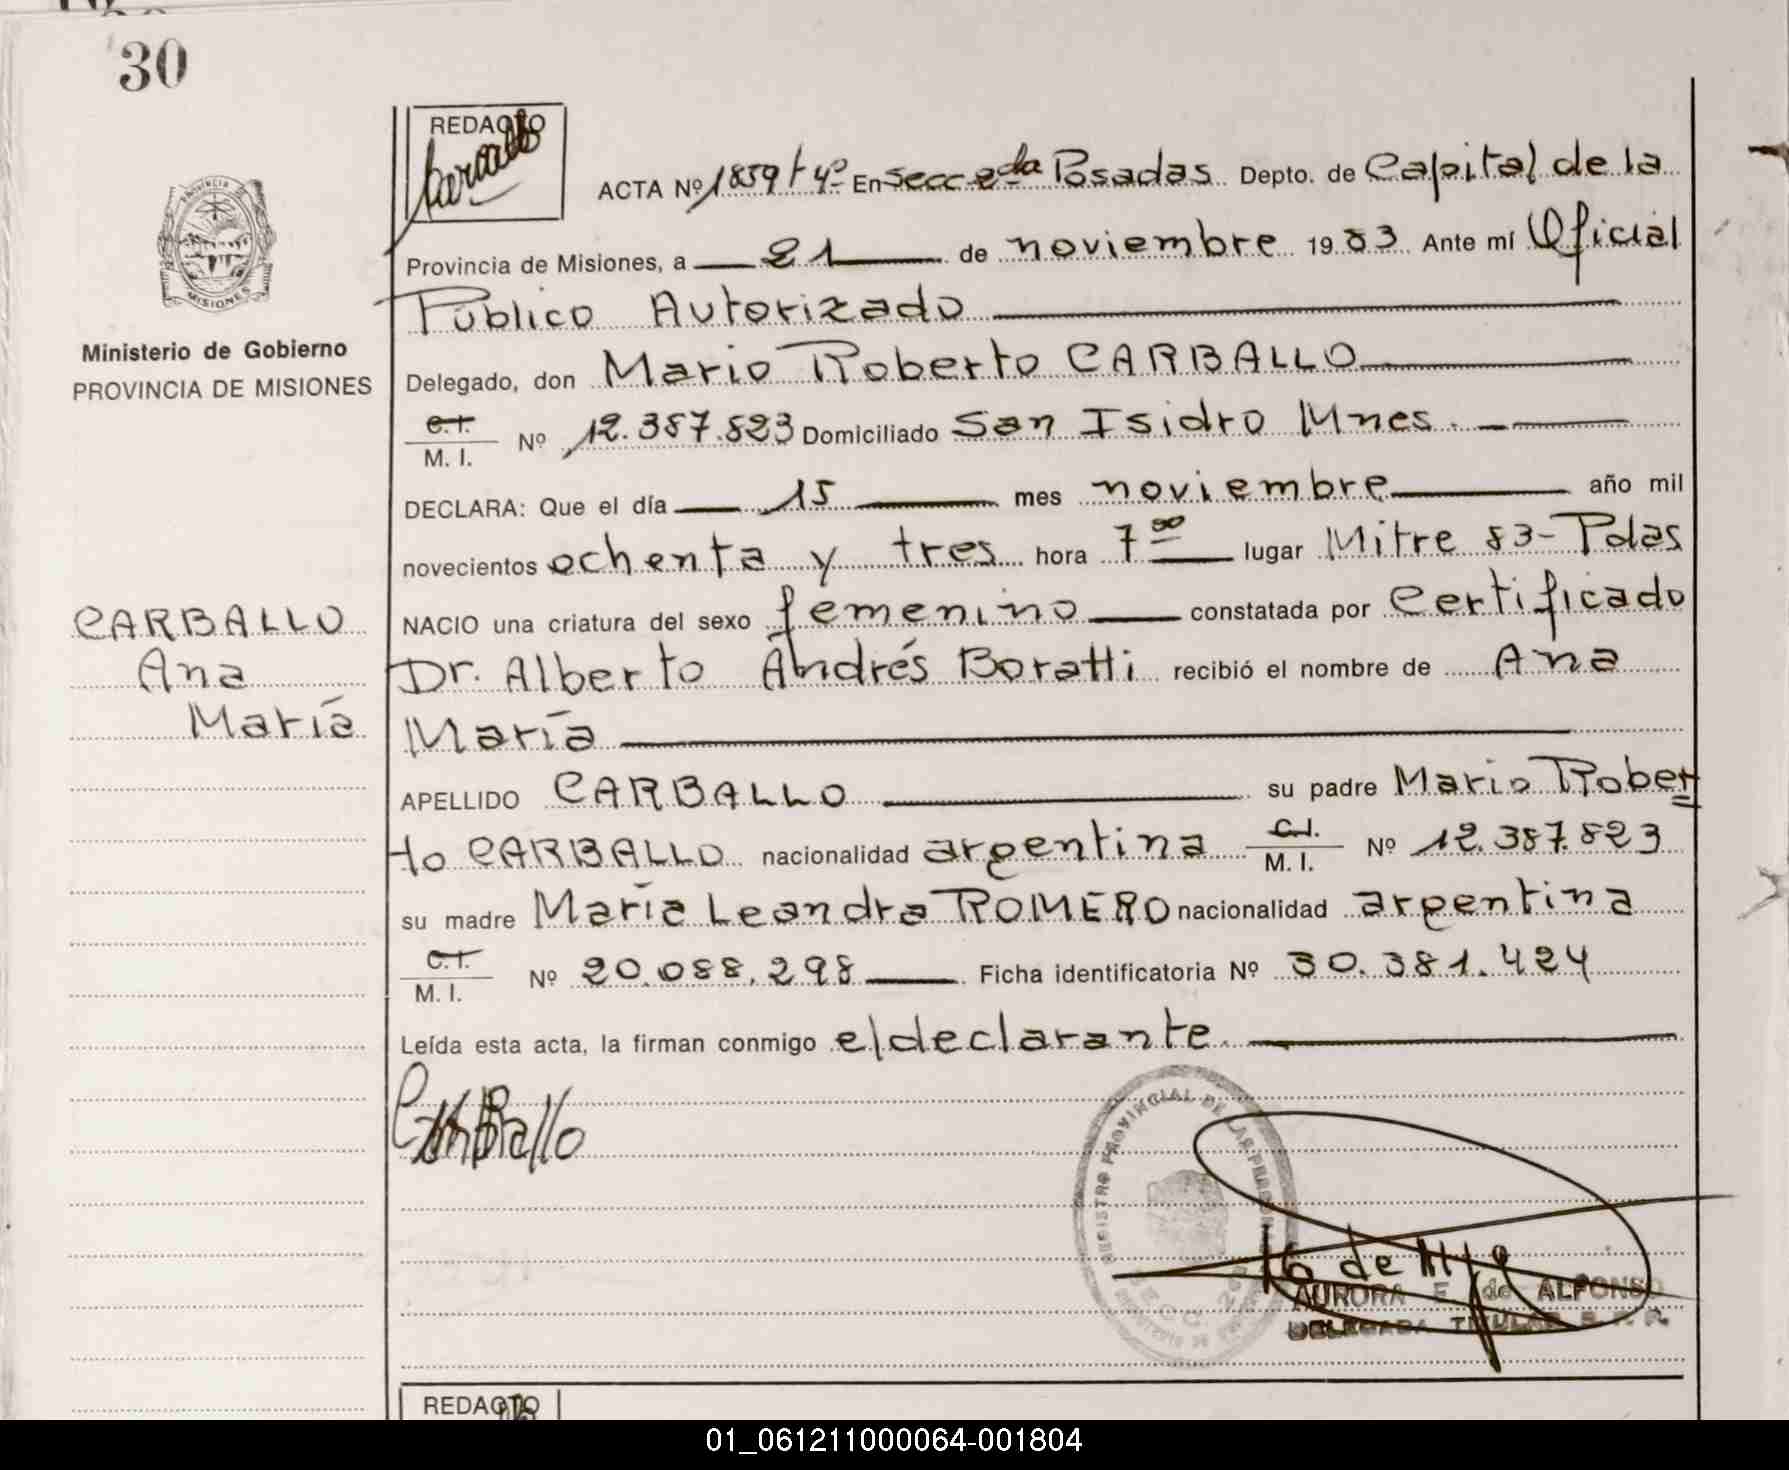 30
REDACTO
ACTA Nº 1859 t 4º En Secc 2da Posadas Depto. de Capital de la
Provincia de Misiones, a 21 de noviembre 1983 Ante mí Oficial
Público Autorizado
MISIONES
Ministerio de Gobierno
PROVINCIA DE MISIONES
Delegado, don Mario Roberto CARBALLO
C.I.
M. I. Nº 12.387.823 Domiciliado San Isidro Mnes.
DECLARA: Que el día 15 mes noviembre año mil
novecientos ochenta y tres hora 7 00 lugar Mitre 83-Pdas
CARBALLO
Ana
María
NACIO una criatura del sexo femenino constatada por Certificado
Dr. Alberto Andrés Boratti recibió el nombre de Ana
María
APELLIDO CARBALLO su padre Mario Rober
to CARBALLO nacionalidad argentina C.I. M. I. Nº 12.387.823
su madre María Leandra ROMERO nacionalidad argentina
C.I.
M. I. Nº 20.088.298 Ficha identificatoria Nº 30.381.424
Leída esta acta, la firman conmigo el declarante.
Carballo
REGISTRO PROVINCIAL DE LAS PERSONAS
AURORA F. de ALFONSO
DELEGADA TITULAR R. P. P.
REDACTO
01_061211000064-001804